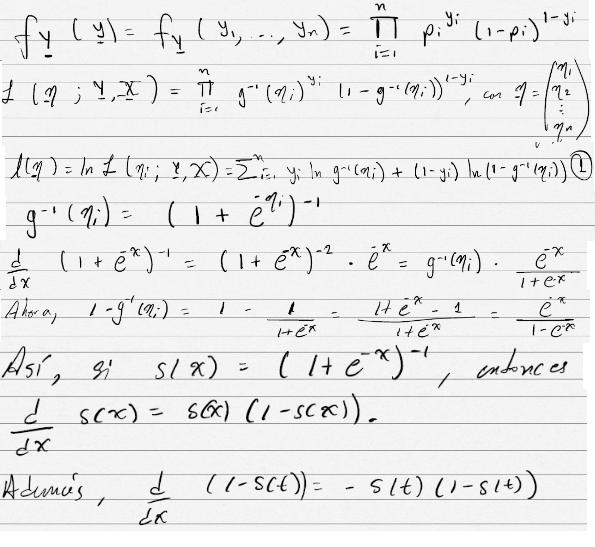 f_Y (y) = f_Y (y_1, ..., y_n) = ∏_{i=1}^{n} p_i^{y_i} (1-p_i)^{1-y_i}
L (η ; Y, X) = ∏_{i=1}^{n} g^{-1}(η_i)^{y_i} (1-g^{-1}(η_i))^{1-y_i}, con η = (η_1 η_2 ⋮ η_n)
l(η) = ln L (η_i ; Y, X) = ∑_{i=1}^{n} y_i ln g^{-1}(η_i) + (1-y_i) ln (1-g^{-1}(η_i)) ①
g^{-1}(η_i) = (1 + e^{-η_i})^{-1}
d/dx (1 + e^{-x})^{-1} = (1 + e^{-x})^{-2} · e^{-x} = g^{-1}(η_i) · e^{-x}/(1+e^{-x})
Ahora, 1-g^{-1}(η_i) = 1 - 1/(1+e^{-x}) = (1+e^{-x}-1)/(1+e^{-x}) = e^{-x}/(1-e^{-x})
Así, si s(x) = (1+e^{-x})^{-1}, entonces
d/dx s(x) = s(x) (1-s(x)).
Además, d/dx (1-s(t)) = - s(t) (1-s(t))